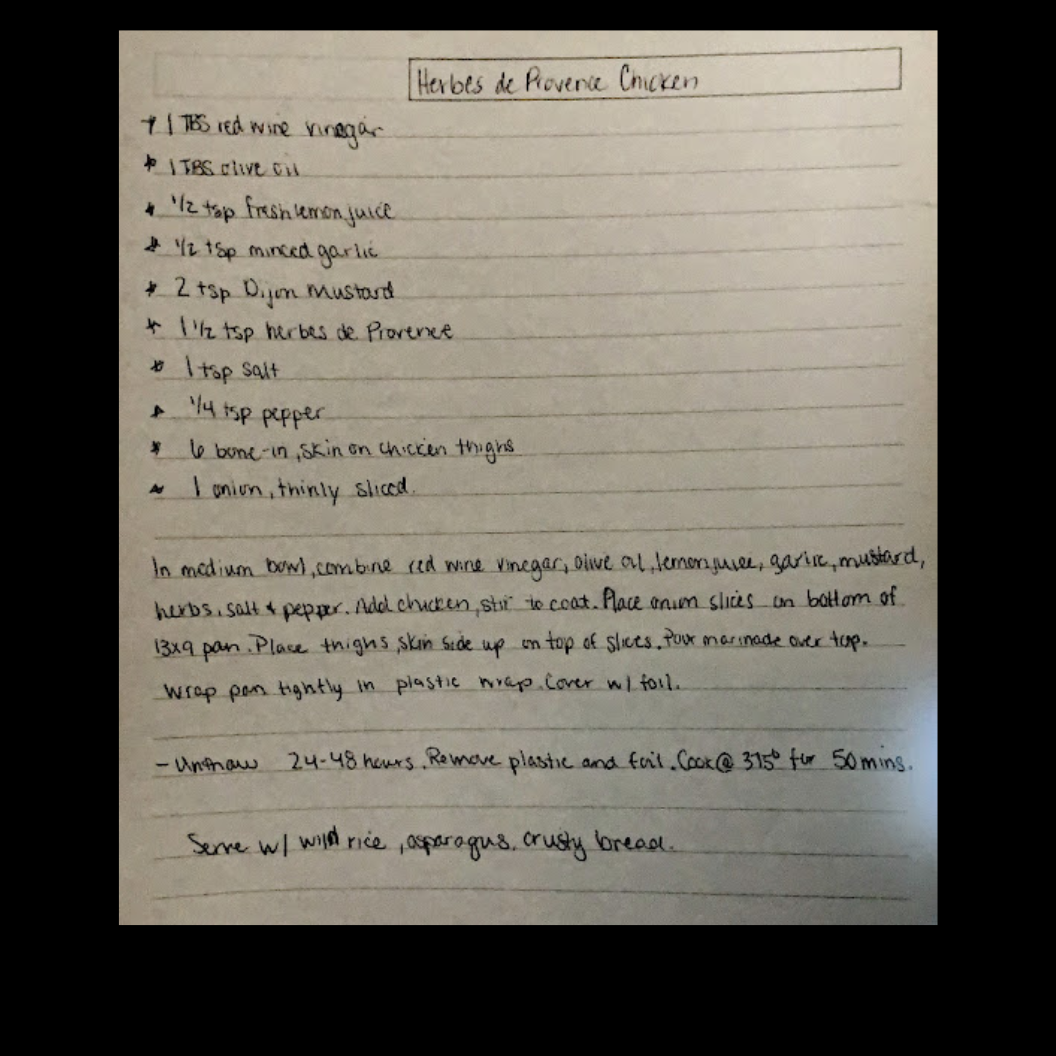 Herbes de Provence Chicken
* 1 TBS red wine vinegar
* 1 TBS olive oil
* 1/2 tsp fresh lemon juice
* 1/2 tsp minced garlic
* 2 tsp Dijon mustard
* 1 1/2 tsp herbes de Provence
* 1 tsp salt
* 1/4 tsp pepper
* 6 bone-in, skin on chicken thighs
* 1 onion, thinly sliced.
In medium bowl, combine red wine vinegar, olive oil, lemon juice, garlic, mustard,
herbs, salt & pepper. Add chicken, stir to coat. Place onion slices on bottom of
13x9 pan. Place thighs, skin side up on top of slices. Pour marinade over top.
Wrap pan tightly in plastic wrap. Cover w/ foil.
- Unthaw 24-48 hours. Remove plastic and foil. Cook @ 375° for 50 mins.
Serve w/ wild rice, asparagus, crusty bread.